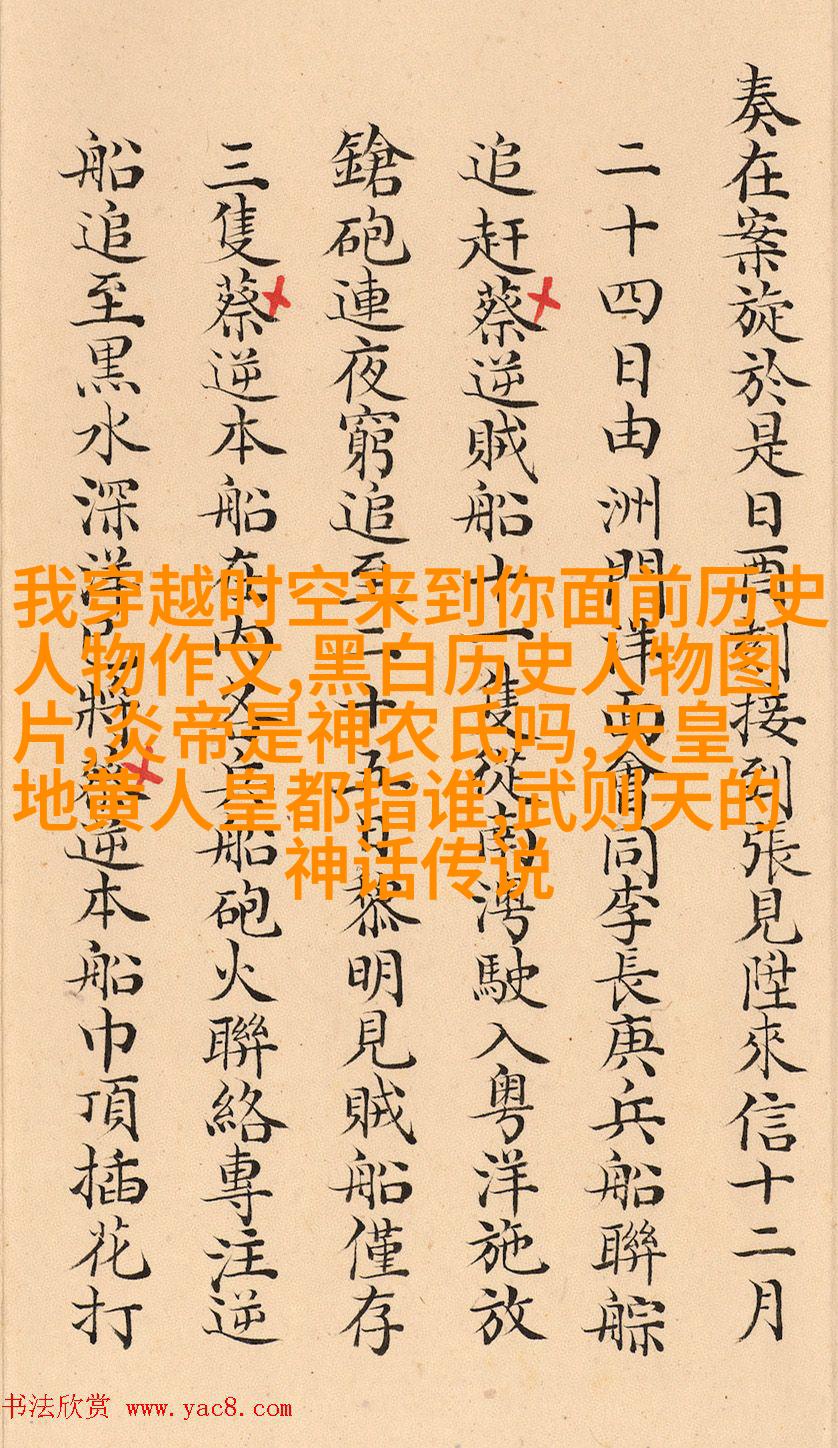 奏在案旋於是日酉刻接到張見陞來信十二月
二十四日由洲門洋面會同李長庚兵船聯䑸
追赶蔡逆賊船十一隻從南灣駛入粤洋施放
鎗砲連夜窮追至二十五日黎明見賊船僅存
三隻蔡逆本船在內各兵船砲火聯絡專注逆
船追至黒水深洋即將蔡逆本船巾頂插花打
我穿越时空来到你面前历史
人物作文,黑白历史人物图
片,炎帝是神农氏吗,天皇
地黄人皇都指谁,武则天的
神话传说
书法欣赏 www.yac8.com